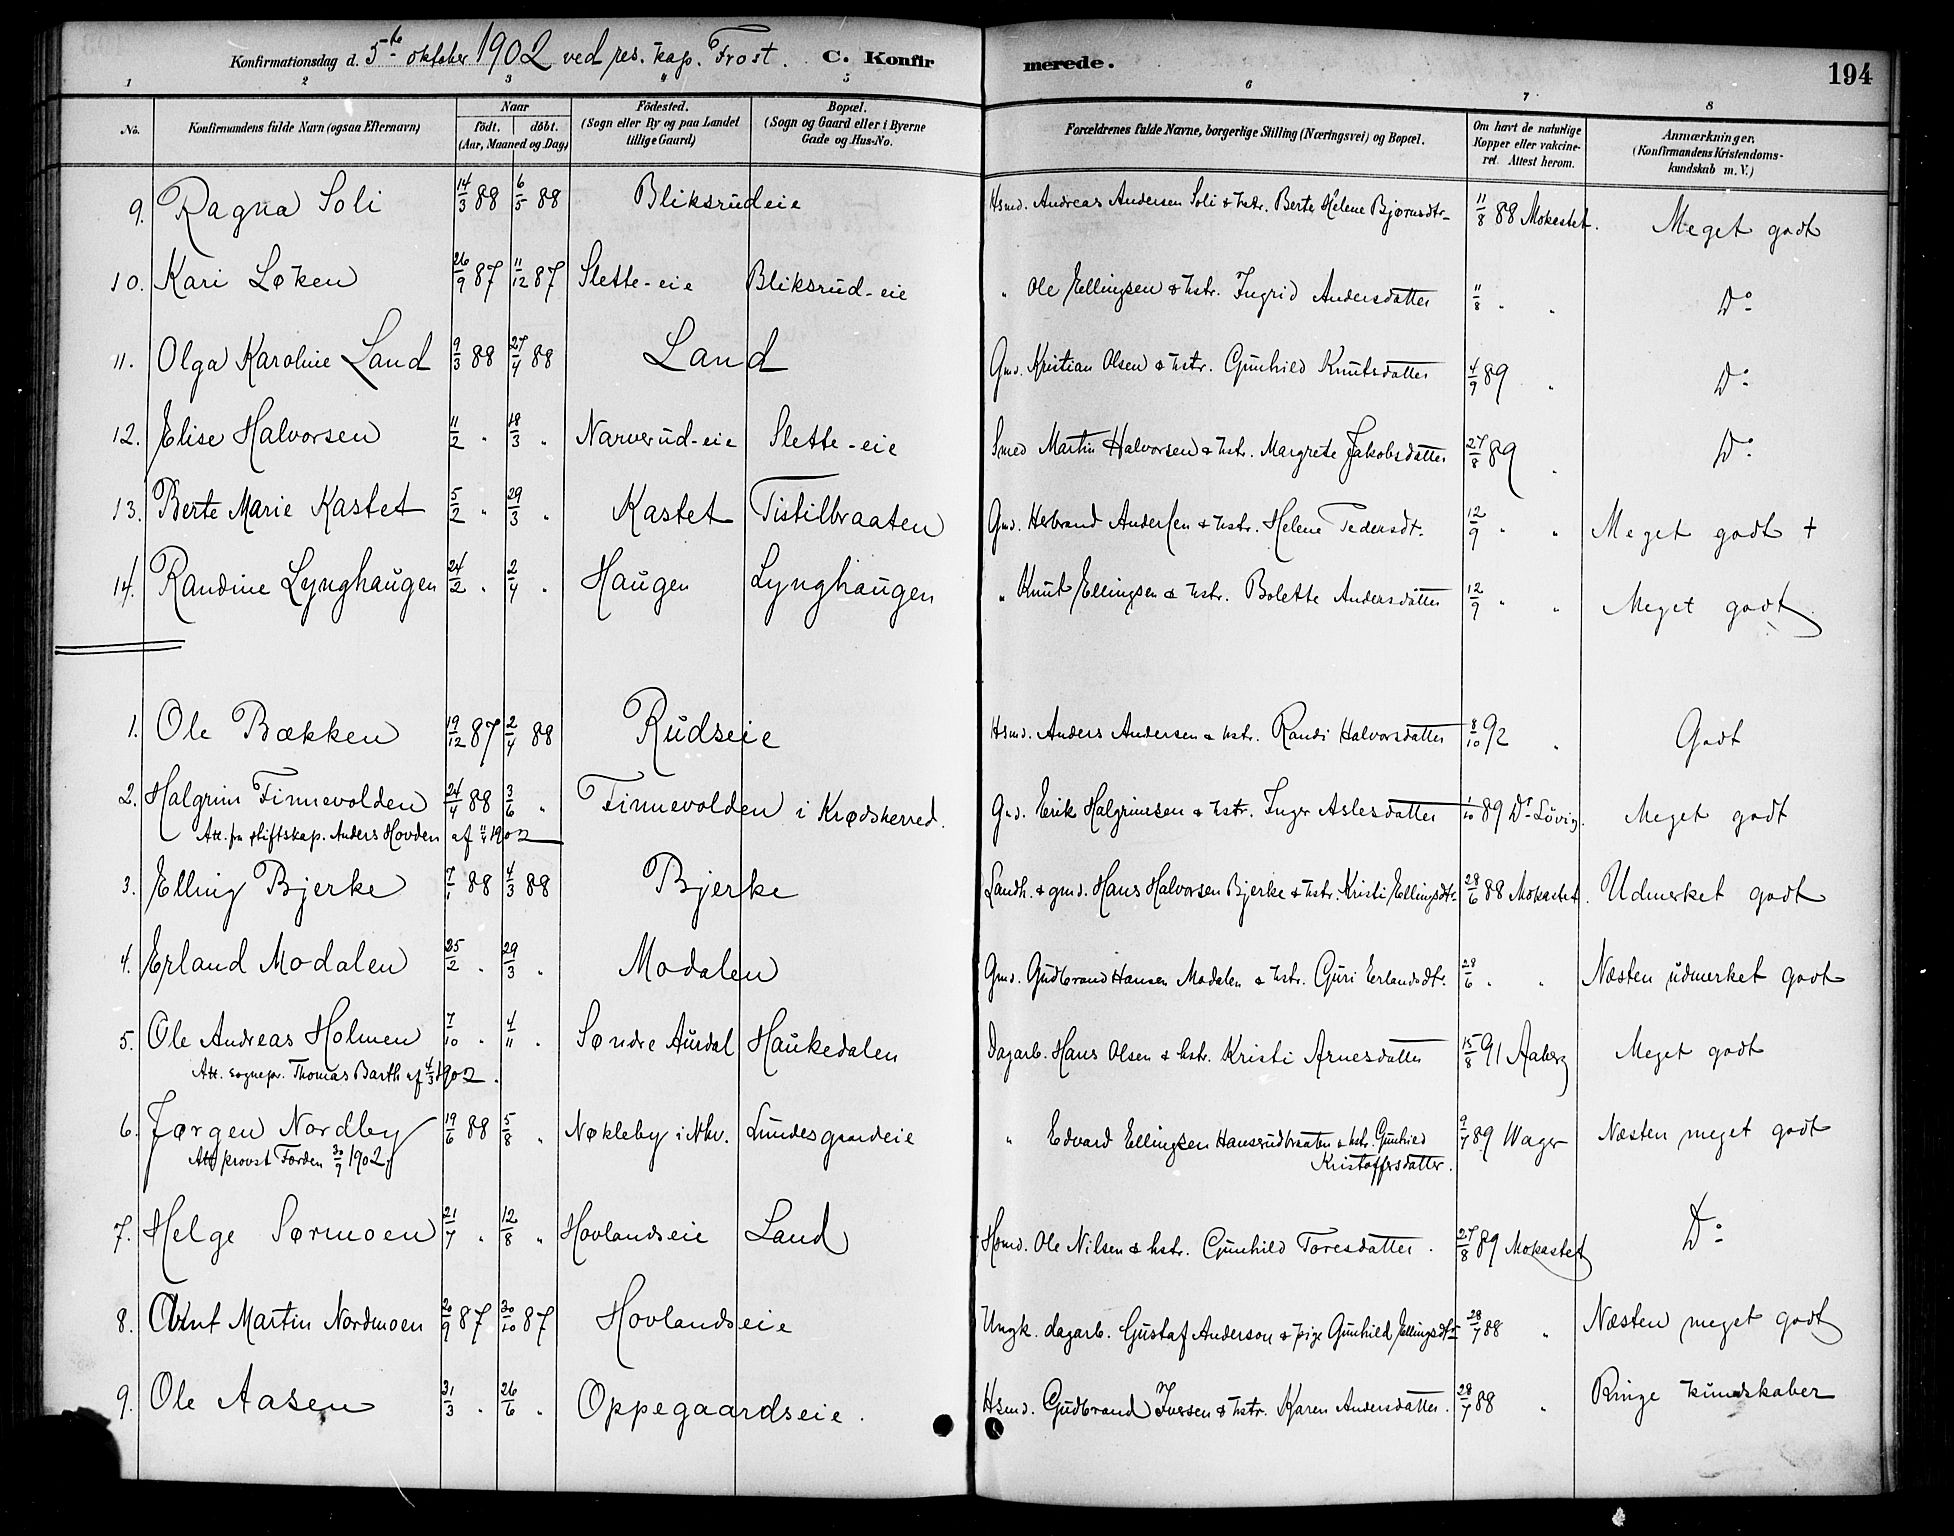 Konfirmationsdag d. 5te oktober 1902 ved res. kap. Frost. C. Konfir merede. 194
1 2 3 4 5 6 7 8
No. Konfirmandens fulde Navn (ogsaa Efternavn) Naar født. døbt. (Aar, Maaned og Dag) Fødested. (Sogn eller By og paa Landet tillige Gaard) Bopæl. (Sogn og Gaard eller i Byerne Gade og Hus-No.) Forældrenes fulde Navne, borgerlige Stilling (Næringsvei) og Bopæl. Om havt de naturlige Kopper eller vakcineret. Attest herom. Anmærkninger. (Konfirmandens Kristendomskundskab m. V.)
9. Ragna Soli 14/3 88 6/5 88 Bliksrudeie Hsmd. Andreas Andersen Soli & hstr. Berte Helene Bjørnsdtr. 11/8 88 Mokastet. Meget godt
10. Kari Løken 26/9 87 11/12 87 Slette-eie Bliksrud-eie " Ole Ellingsen & hstr. Ingrid Andersdatter 11/8 " " Do
11. Olga Karoline Land 9/3 88 27/4 88 Land Gmd. Kristian Olsen & hstr. Gunhild Knutsdatter 4/9 89 " Do
12. Elise Halvorsen 11/2 " 18/3 " Narverud-eie Slette-eie Smed Martin Halvorsen & hstr. Margrete Jakobsdatter 27/8 89 " Do
13. Berte Marie Kastet 5/2 " 29/3 " Kastet Tistilbraaten Gmd. Herbrand Andersen & hstr. Helene Pedersdt. 12/9 " " Meget godt +
14. Randine Lynghaugen 24/2 " 2/4 " Haugen Lynghaugen " Knut Ellingsen & hstr. Bolette Andersdatter 12/9 " " Meget godt
1. Ole Bækken 19/12 87 2/4 88 Rudseie Hsmd. Anders Andersen & hstr. Randi Halvorsdatter 8/10 92 " Godt
2. Halgrim Finnevolden 24/4 88 3/6 " Finnevolden i Krødsherred. Gmd. Erik Halgrimsen & hstr. Inger Aslesdatter 1/10 89 Dr Lövig. Meget godt
Att. fra stiftskap. Anders Hovden af 11/4 1902
3. Elling Bjerke 7/1 88 4/3 88 Bjerke Landh. & gmd. Hans Halvorsen Bjerke & hstr. Kristi Ellingsdtr. 28/6 88 Mokastet. Udmerket godt
4. Erland Modalen 25/2 " 29/3 " Modalen Gmd. Gudbrand Hansen Modalen & hstr. Guri Erlandsdtr. 28/6 " " Næsten udmerket godt
5. Ole Andreas Holmen 7/10 " 4/11 " Søndre Aurdal Haukedalen Dagarb. Hans Olsen & hstr. Kristi Arnesdatter 15/8 91 Aaberg Meget godt
Att. sognepr. Thomas Barth af 4/3 1902.
6. Jørgen Nordby 19/6 88 5/8 " Nøkleby i Nhv. Lundesgaardeie " Edvard Ellingsen Hansrudbraaten & hstr. Gunhild Kristoffersdatter. 9/7 89 Wager Næsten meget godt
Att provst Førden 30/9 1902.
7. Helge Sørmoen 21/7 " 12/8 " Hovlandseie Land Hsmd. Ole Nilsen & hstr. Gunhild Toresdatter. 27/8 89 Mokastet Do
8. Arnt Martin Nordmoen 26/9 87 30/10 87 Hovlandseie Ungk. dagarb. Gustaf Anderson & pige Gunhild Ellingsdtr 28/7 88 " Næsten meget godt
9. Ole Aasen 31/3 " 26/6 " Oppegaardseie. Hsmd. Gudbrand Iversen & hstr. Karen Andersdatter. 28/7 88 " Ringe kundskaber